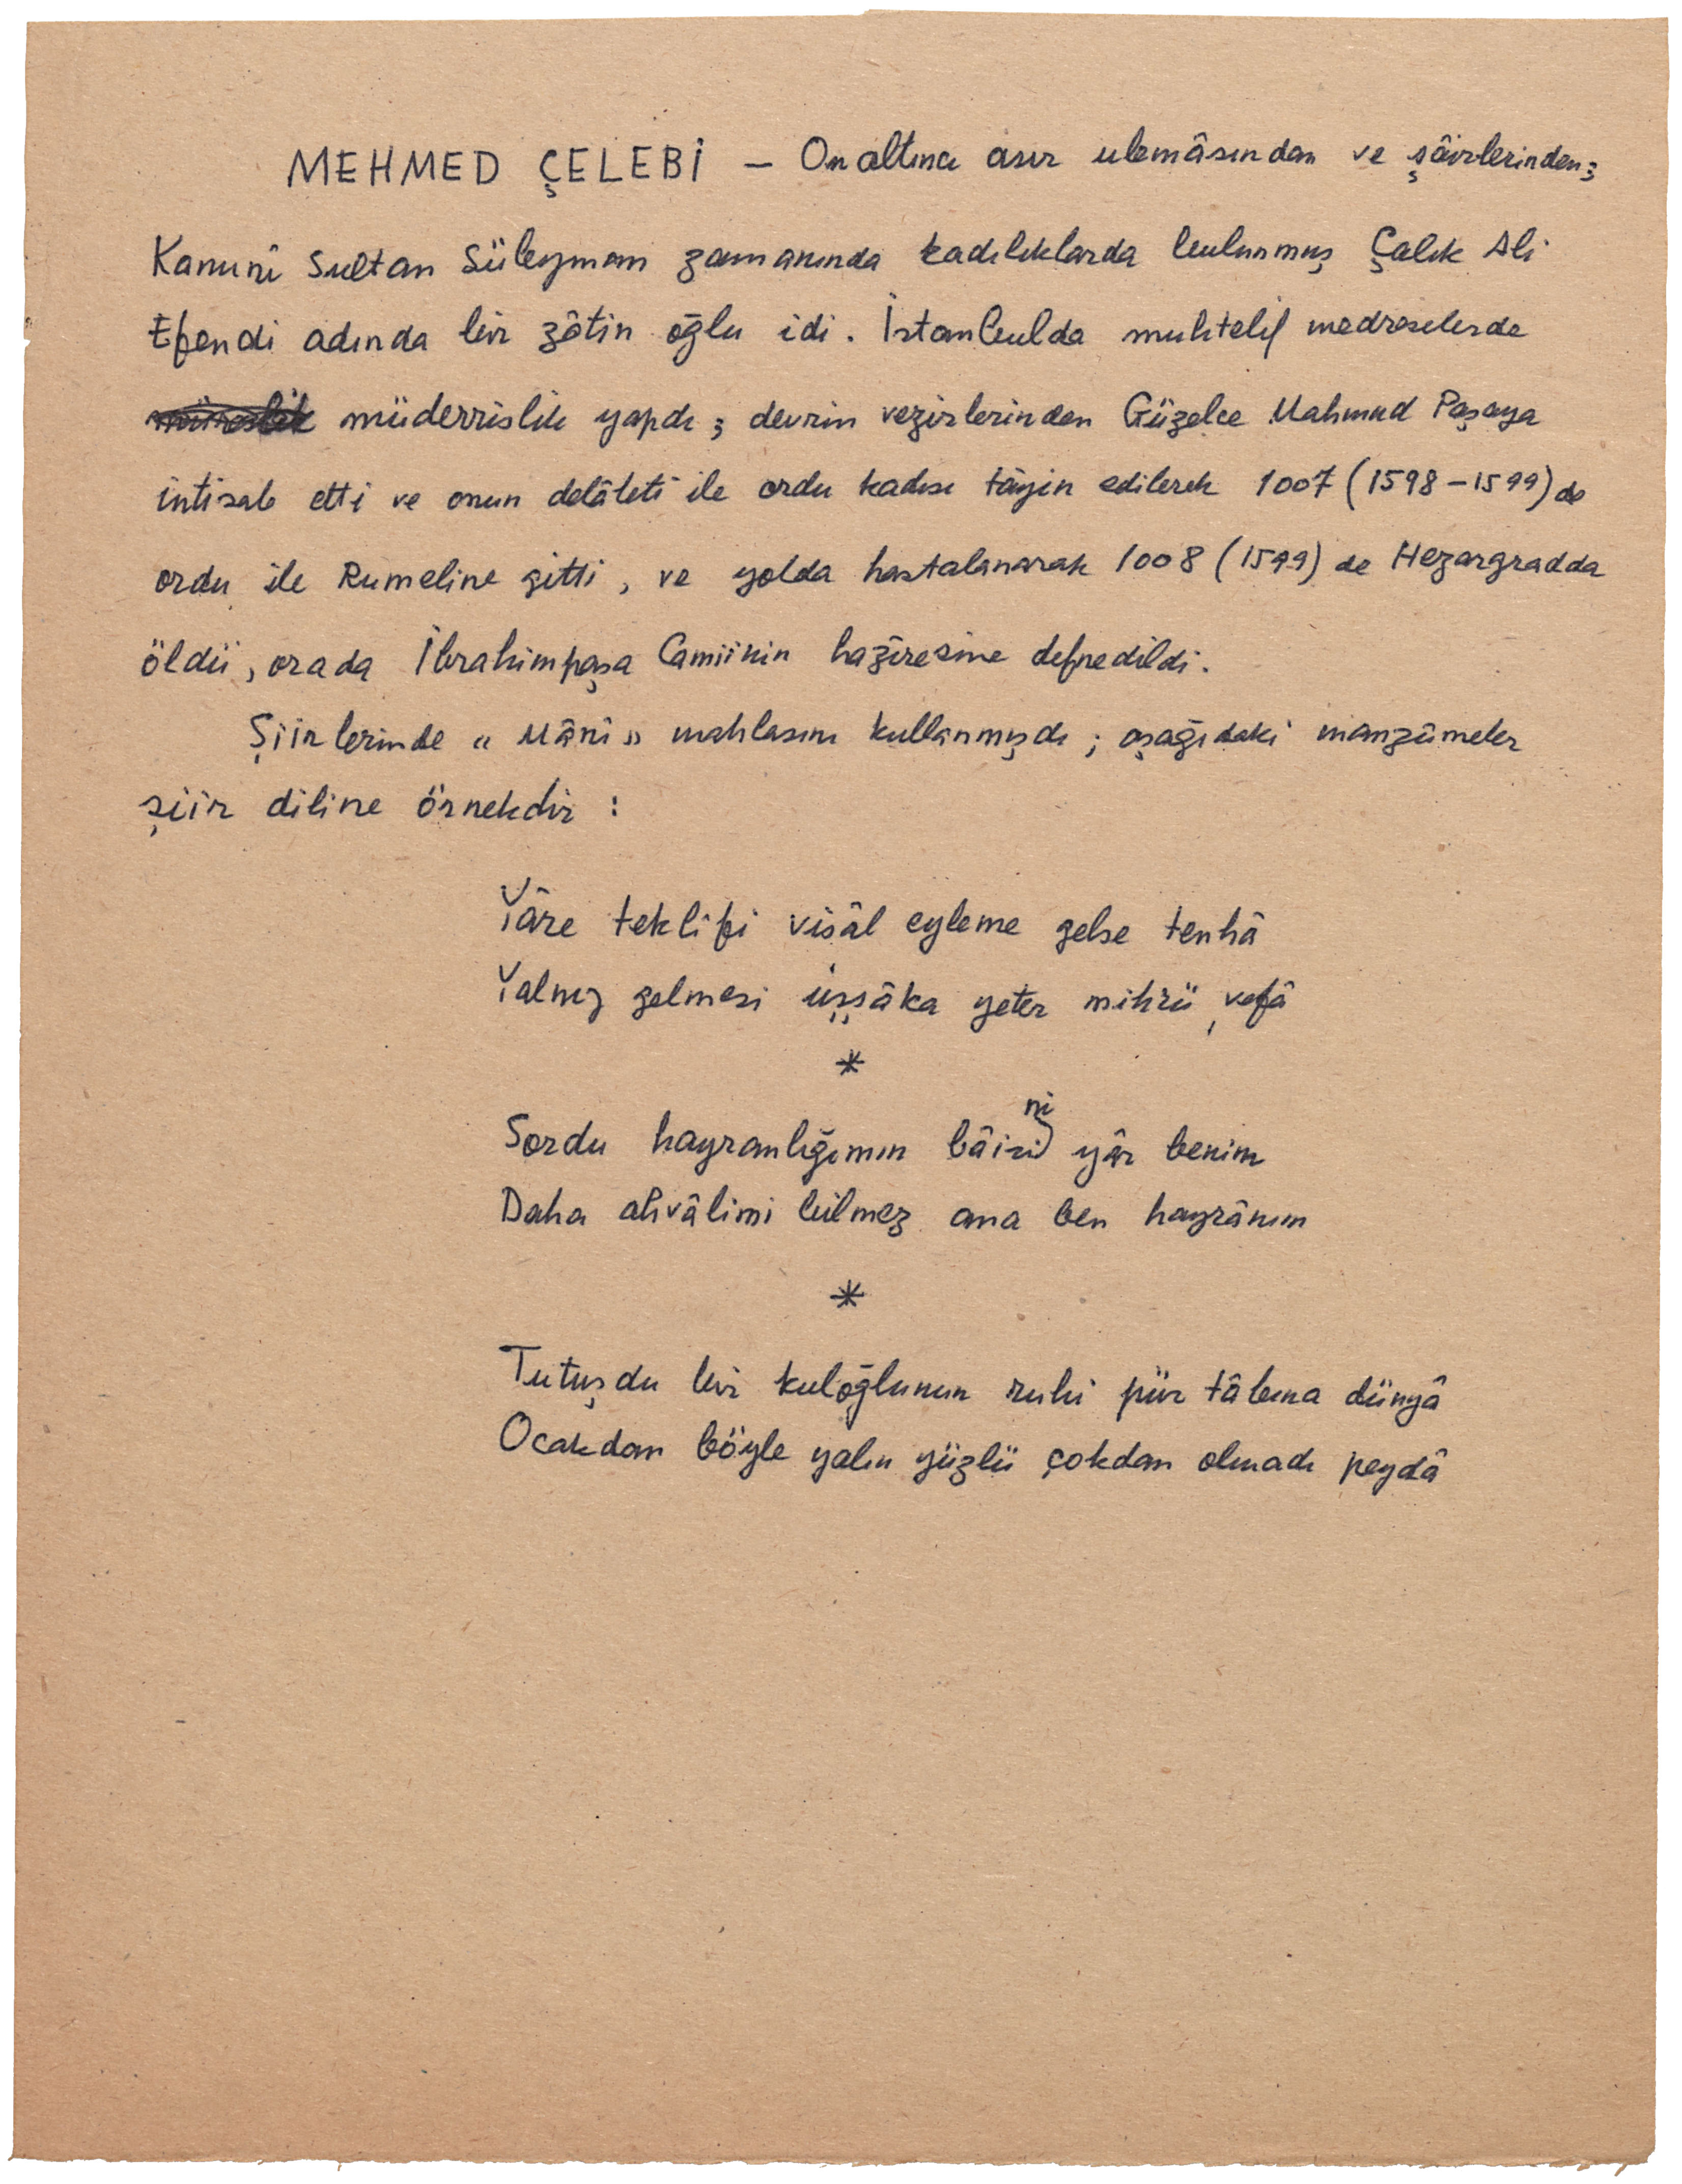 MEHMED ÇELEBİ — Onaltıncı asır ulemâsından ve şâirlerinden;
Kanunî Sultan Süleyman zamanında kadılıklarda bulunmuş Çalık Ali
Efendi adında bir zâtin oğlu idi. İstanbulda muhtelif medreselerde
müderrislik yapdı; devrin vezirlerinden Güzelce Mahmud Paşaya
intisab etti ve onun delâleti ile ordu kadısı tâyin edilerek 1007 (1598-1599) de
ordu ile Rumeline gitti, ve yolda hastalanarak 1008 (1599) de Hezargradda
öldü, orada İbrahimpaşa Camiinin hazîresine defnedildi.
Şiirlerinde "Mânî" mahlasını kullanmışdı; aşağıdaki manzûmeler
şiir diline örnekdir:
Yâre teklîfi visâl eyleme gelse tenhâ
Yalnız gelmesi üşşâka yeter mihrü vefâ
*
Sordu hayranlığımın bâisini yâr benim
Daha ahvâlimi bilmez ana ben hayrânım
*
Tutuşdu bir kuloğlunun ruhi pür tâbına dünyâ
Ocakdan böyle yalın yüzlü çokdan olmadı peydâ